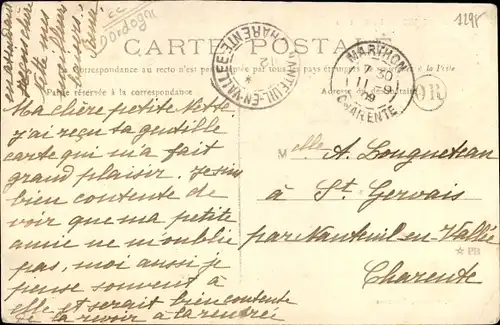 CARTE POSTALE
La Correspondance au recto n'est pas
à la Poste
Partie réservée à la correspondance
Adresse
MARTHON
7 30
CHARENTE
NANTEUIL-EN-VALLÉE
CHARENTE
12
OR
1295
Dordogne
Ma chère petite Nette
j'ai reçu ta gentille
carte qui m'a fait
grand plaisir. Je suis
bien contente de
voir que ma petite
amie ne m'oublie
pas, moi aussi je
pense souvent à
elle et serait bien contente
de la revoir à la rentrée
meilleurs
baisers
Melle A. Longueteau
à St. Gervais
par Nanteuil-en-Vallée
Charente
PB